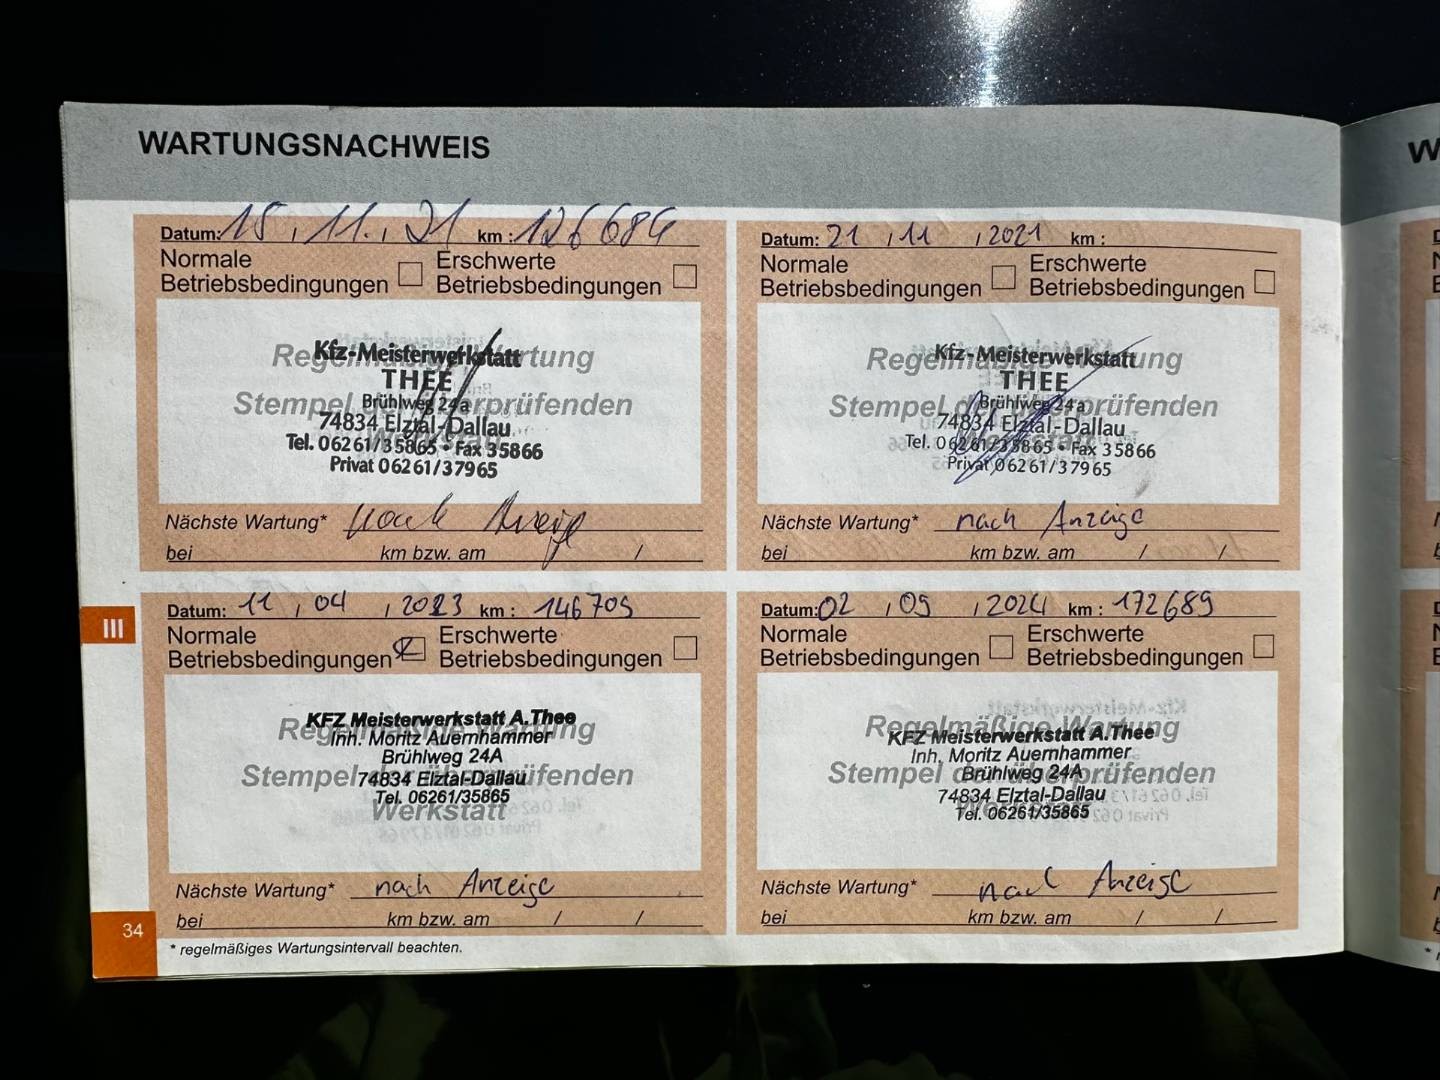 WARTUNGSNACHWEIS
Datum: 15, 11., 21 km: 126684
Normale Betriebsbedingungen Erschwerte Betriebsbedingungen
Regelmäßige Wartung
Stempel der überprüfenden
Werkstatt
Kfz-Meisterwerkstatt
THEE
Brühlweg 24a
74834 Elztal-Dallau
Tel. 06261/35865 • Fax 35866
Privat 06261/37965
Nächste Wartung* nach Anzeige
bei km bzw. am / /
Datum: 21, 11, 2021 km:
Normale Betriebsbedingungen Erschwerte Betriebsbedingungen
Regelmäßige Wartung
Stempel der überprüfenden
Werkstatt
Kfz-Meisterwerkstatt
THEE
Brühlweg 24a
74834 Elztal-Dallau
Tel. 06261/35865 • Fax 35866
Privat 06261/37965
Nächste Wartung* nach Anzeige
bei km bzw. am / /
Datum: 11, 04, 2023 km: 146705
Normale Betriebsbedingungen Erschwerte Betriebsbedingungen
Regelmäßige Wartung
Stempel der überprüfenden
Werkstatt
KFZ Meisterwerkstatt A.Thee
Inh. Moritz Auernhammer
Brühlweg 24A
74834 Elztal-Dallau
Tel. 06261/35865
Nächste Wartung* nach Anzeige
bei km bzw. am / /
Datum: 02, 05, 2024 km: 172689
Normale Betriebsbedingungen Erschwerte Betriebsbedingungen
Regelmäßige Wartung
Stempel der überprüfenden
Werkstatt
KFZ Meisterwerkstatt A.Thee
Inh. Moritz Auernhammer
Brühlweg 24A
74834 Elztal-Dallau
Tel. 06261/35865
Nächste Wartung* nach Anzeige
bei km bzw. am / /
III
34
* regelmäßiges Wartungsintervall beachten.